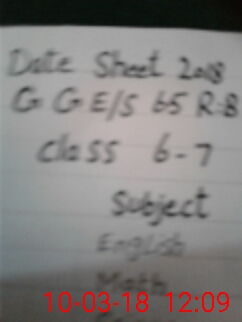 Date Sheet 2018
G G E/S 65 R:B
Class 6-7
Subject
English
Math
10-03-18 12:09